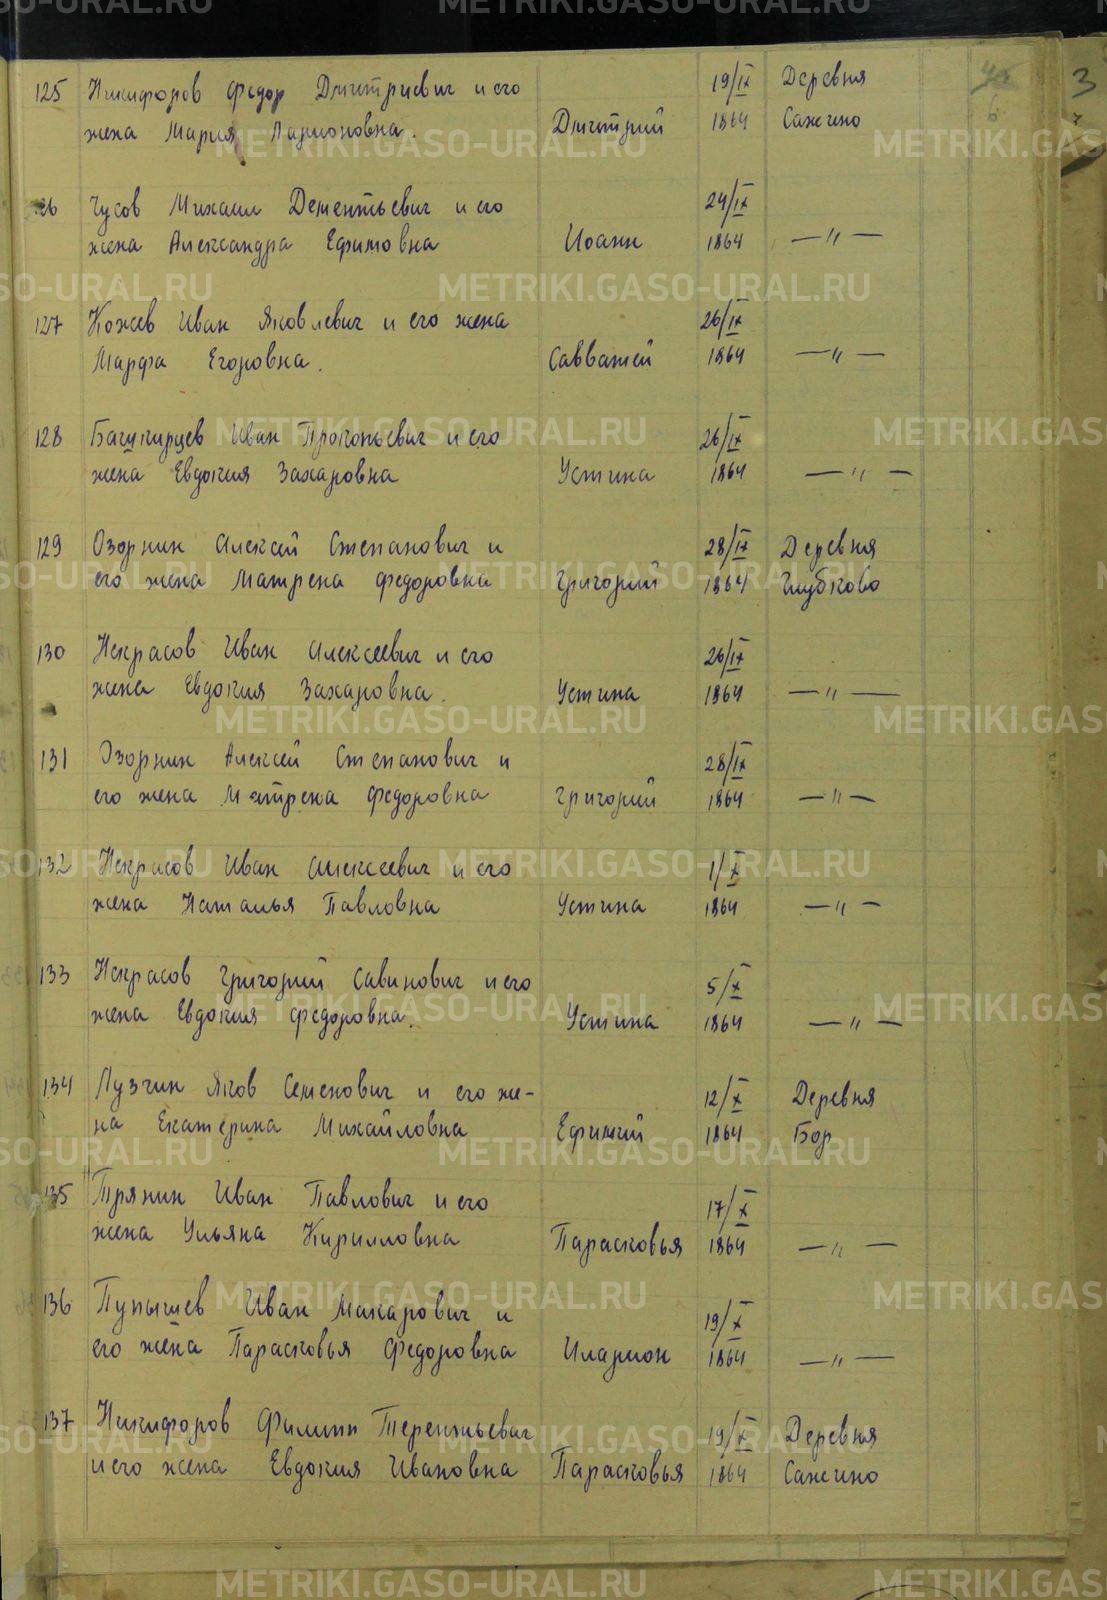 125 Никифоров Федор Дмитриевич и его 19/IX Деревня
жена Мария Ларионовна. Дмитрий 1864 Сажино
Чусов Михаил Дементьевич и его 24/IX
жена Александра Ефимовна Иоанн 1864 — " —
127 Кожев Иван Яковлевич и его жена 26/IX
Марфа Егоровна. Савватей 1864 — " —
128 Башкирцев Иван Прокопьевич и его 26/IX
жена Евдокия Захаровна Устина 1864 — " —
129 Озорнин Алексей Степанович и 28/IX Деревня
его жена Матрена Федоровна Григорий 1864 Глубково
130 Некрасов Иван Алексеевич и его 26/IX
жена Евдокия Захаровна. Устина 1864 — " —
131 Озорнин Алексей Степанович и 28/IX
его жена Матрена Федоровна Григорий 1864 — " —
132 Некрасов Иван Алексеевич и его 1/X
жена Наталья Павловна Устина 1864 — " —
133 Некрасов Григорий Савинович и его 5/X
жена Евдокия Федоровна. Устина 1864 — " —
134 Лузгин Яков Семенович и его же- 12/X Деревня
на Екатерина Михайловна Ефимий 1864 Бор
135 Трянин Иван Павлович и его 17/X
жена Ульяна Кирилловна Парасковья 1864 — " —
136 Пупышев Иван Макарович и 19/X
его жена Парасковья Федоровна Иларион 1864 — " —
137 Никифоров Филипп Терентьевич 19/X Деревня
и его жена Евдокия Ивановна Парасковья 1864 Сажино
METRIKI.GASO-URAL.RU